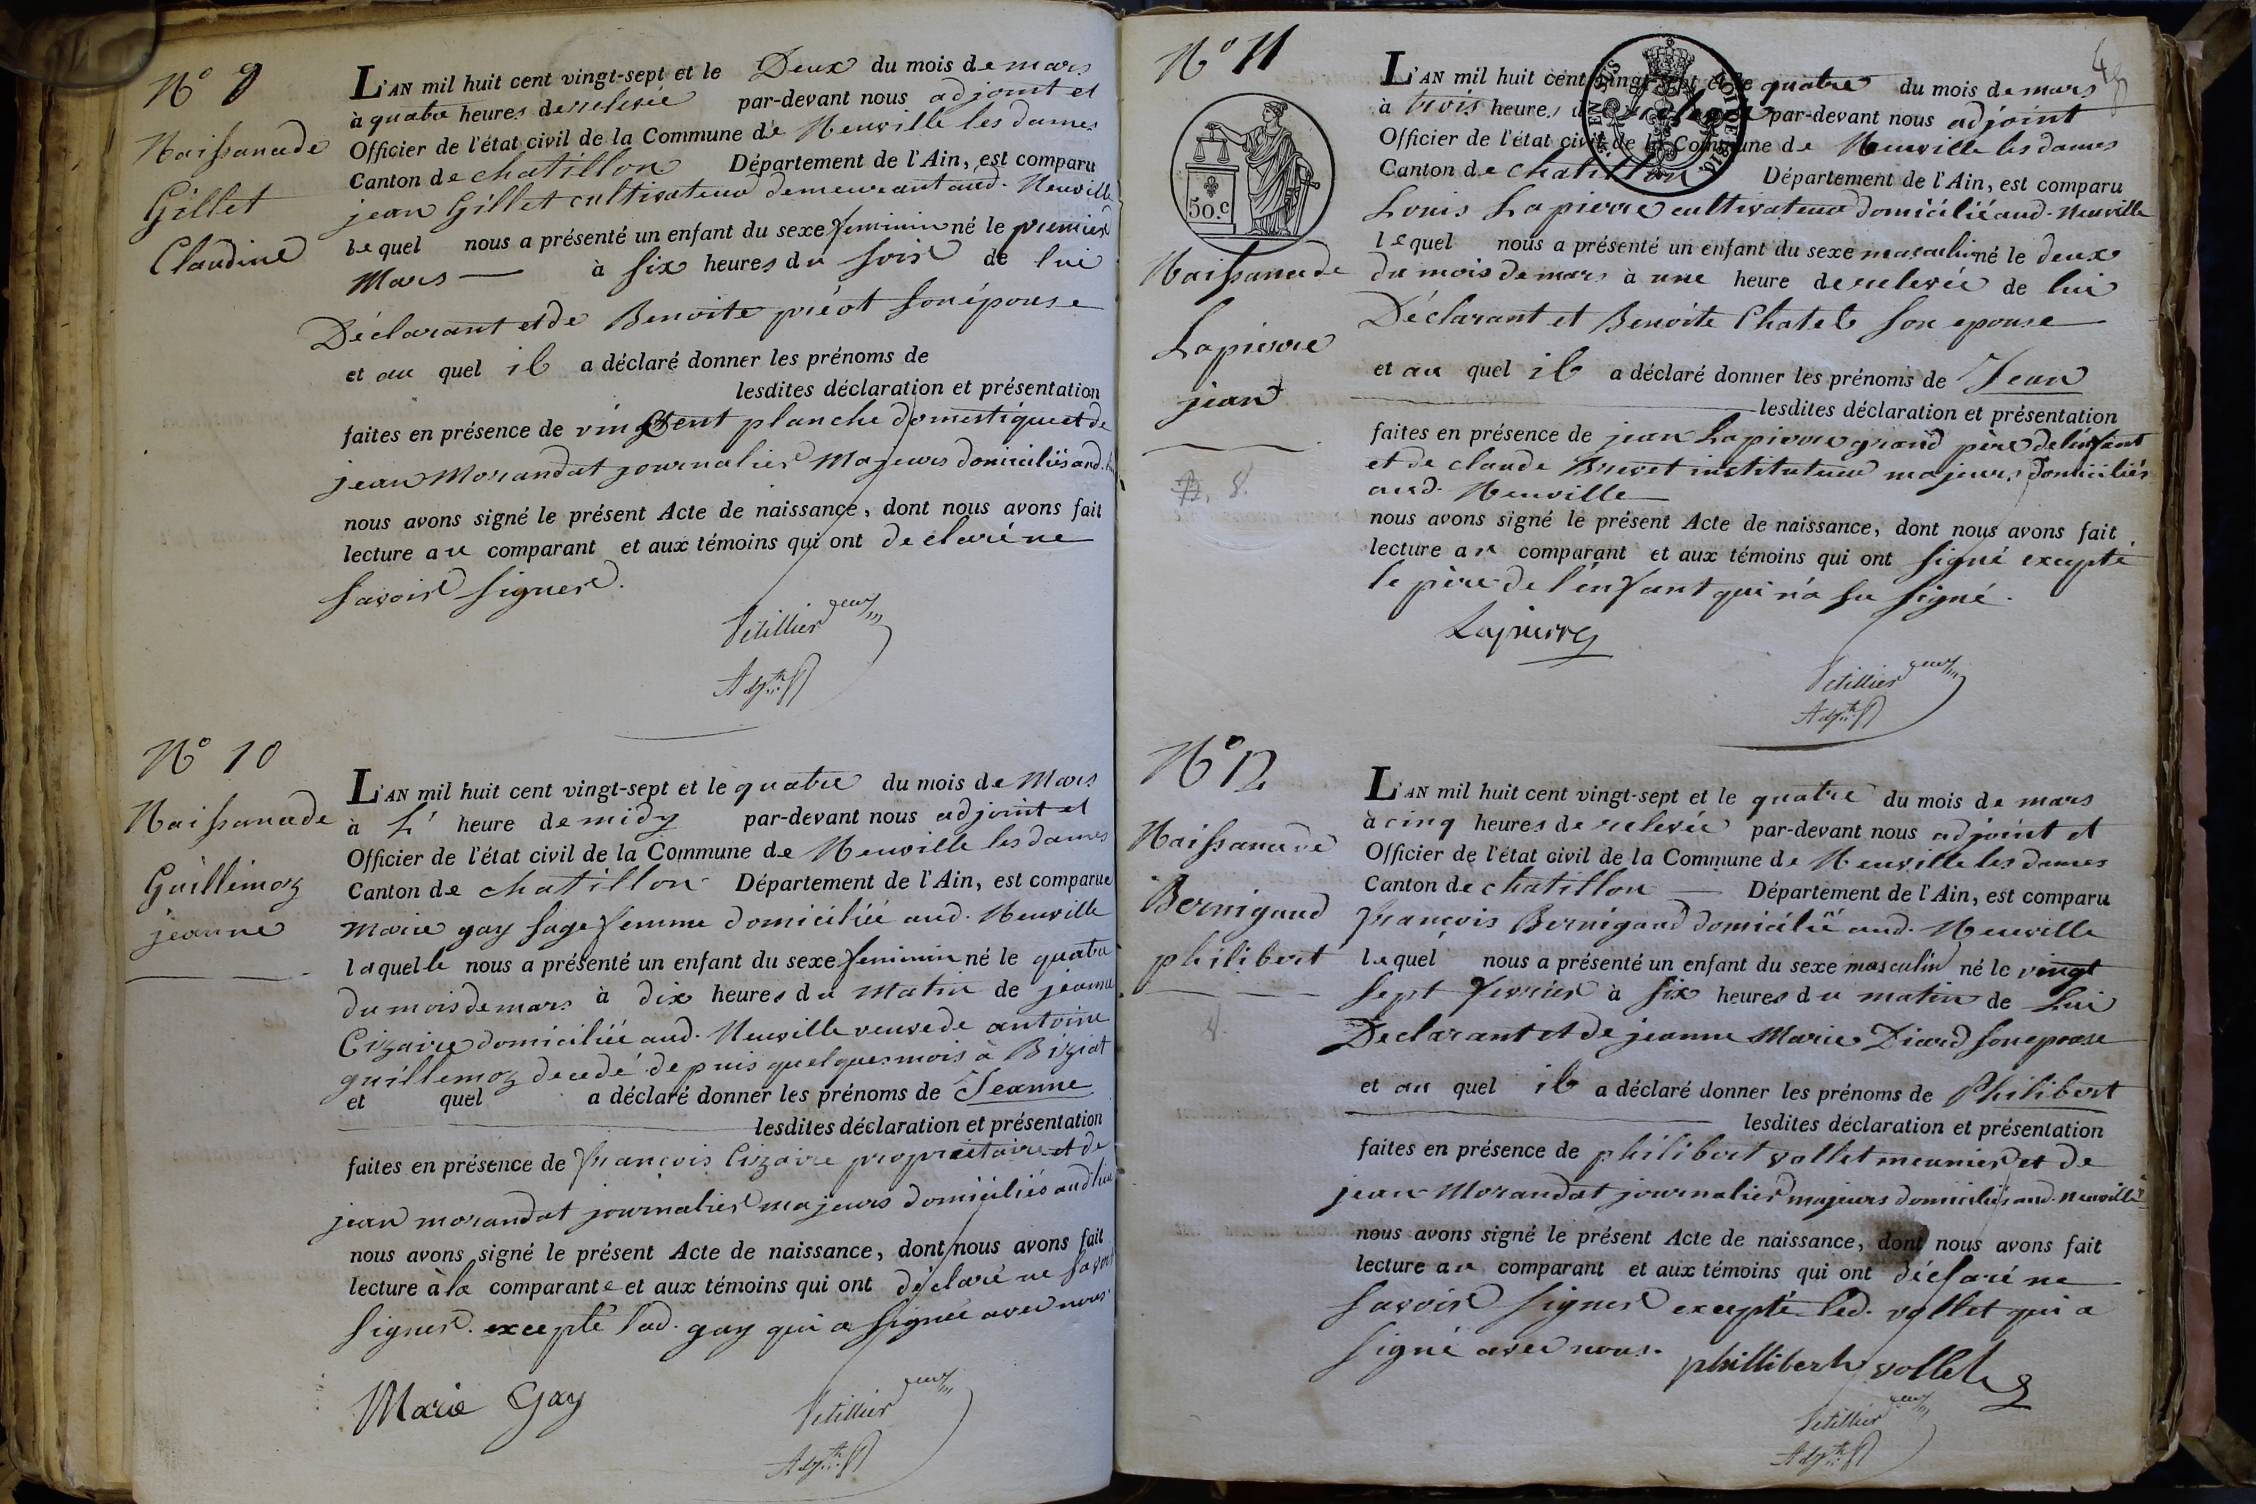 N° 9
Naissance de
Gillet
Claudine
L'AN mil huit cent vingt-sept et le Deux du mois de mars
à quatre heures de relevée par-devant nous adjoint et
Officier de l'état civil de la Commune de Neuville les dames
Canton de chatillon Département de l'Ain, est comparu
jean Gillet cultivateur demeurant aud. Neuville
lequel nous a présenté un enfant du sexe feminin né le premier
Mars à six heures du soir de lui
Déclarant et de Benoite préot son épouse
et au quel il a déclaré donner les prénoms de
lesdites déclaration et présentation
faites en présence de vincent planche domestique et de
jean Morandat journalier Majeurs domiciliés aud.
nous avons signé le présent Acte de naissance, dont nous avons fait
lecture au comparant et aux témoins qui ont declaré ne
savoir signer.
Vetillier
Adj.
N° 10
Naissance de
Guillemoz
jeanne
L'AN mil huit cent vingt-sept et le quatre du mois de Mars
à L' heure de midy par-devant nous adjoint et
Officier de l'état civil de la Commune de Neuville les dames
Canton de chatillon Département de l'Ain, est comparue
Marie gay sage femme domiciliée aud. Neuville
laquelle nous a présenté un enfant du sexe feminin né le quatre
du mois de mars à dix heures du Matin de jeanne
Cizaire domiciliée aud. Neuville veuve de antoine
guillemoz decedé depuis quelques mois à Biziat
et quel a déclaré donner les prénoms de Jeanne
lesdites déclaration et présentation
faites en présence de françois Cizaire proprietaire et de
jean morandat journalier majeurs domiciliés aud
nous avons signé le présent Acte de naissance, dont nous avons fait
lecture à la comparante et aux témoins qui ont déclaré ne savoir
signer. excepté lad. gay qui a signée avec nous.
Marie Gay
Vetillier
Adj.
48
N° 11
50.c
Naissance de
Lapierre
jean
8.
L'AN mil huit cent vingt-sept et le quatre du mois de mars
à trois heures de relevée par-devant nous adjoint
Officier de l'état civil de la Commune de Neuville les dames
Canton de chatillon Département de l'Ain, est comparu
Louis Lapierre cultivateur domicilié aud. Neuville
lequel nous a présenté un enfant du sexe masculin né le deux
du mois de mars à une heure de relevée de lui
Déclarant et Benoite Chatel son epouse
et au quel il a déclaré donner les prénoms de Jean
lesdites déclaration et présentation
faites en présence de jean Lapierre grand père de l'enfant
et de claude Brevet instituteur majeurs domiciliés
aud. Neuville
nous avons signé le présent Acte de naissance, dont nous avons fait
lecture au comparant et aux témoins qui ont signé excepté
le père de l'enfant qui n'a su signé.
Lapierre
Vetillier
Adj.
N° 12
Naissance de
Bernigaud
philibert
8.
L'AN mil huit cent vingt-sept et le quatre du mois de mars
à cinq heures de relevée par-devant nous adjoint et
Officier de l'état civil de la Commune de Neuville les dames
Canton de chatillon Département de l'Ain, est comparu
françois Bernigaud domicilié aud. Neuville
lequel nous a présenté un enfant du sexe masculin né le vingt
sept fevrier à six heures du matin de Lui
Declarant et de jeanne Marie Dicard son epouse
et au quel il a déclaré donner les prénoms de Philibert
lesdites déclaration et présentation
faites en présence de philibert vollet meunier et de
jean Morandat journalier majeurs domiciliés aud. neuville
nous avons signé le présent Acte de naissance, dont nous avons fait
lecture au comparant et aux témoins qui ont déclaré ne
savoir signer excepté led. vollet qui a
signé avec nous.
phillibert vollet
Vetillier
Adj.